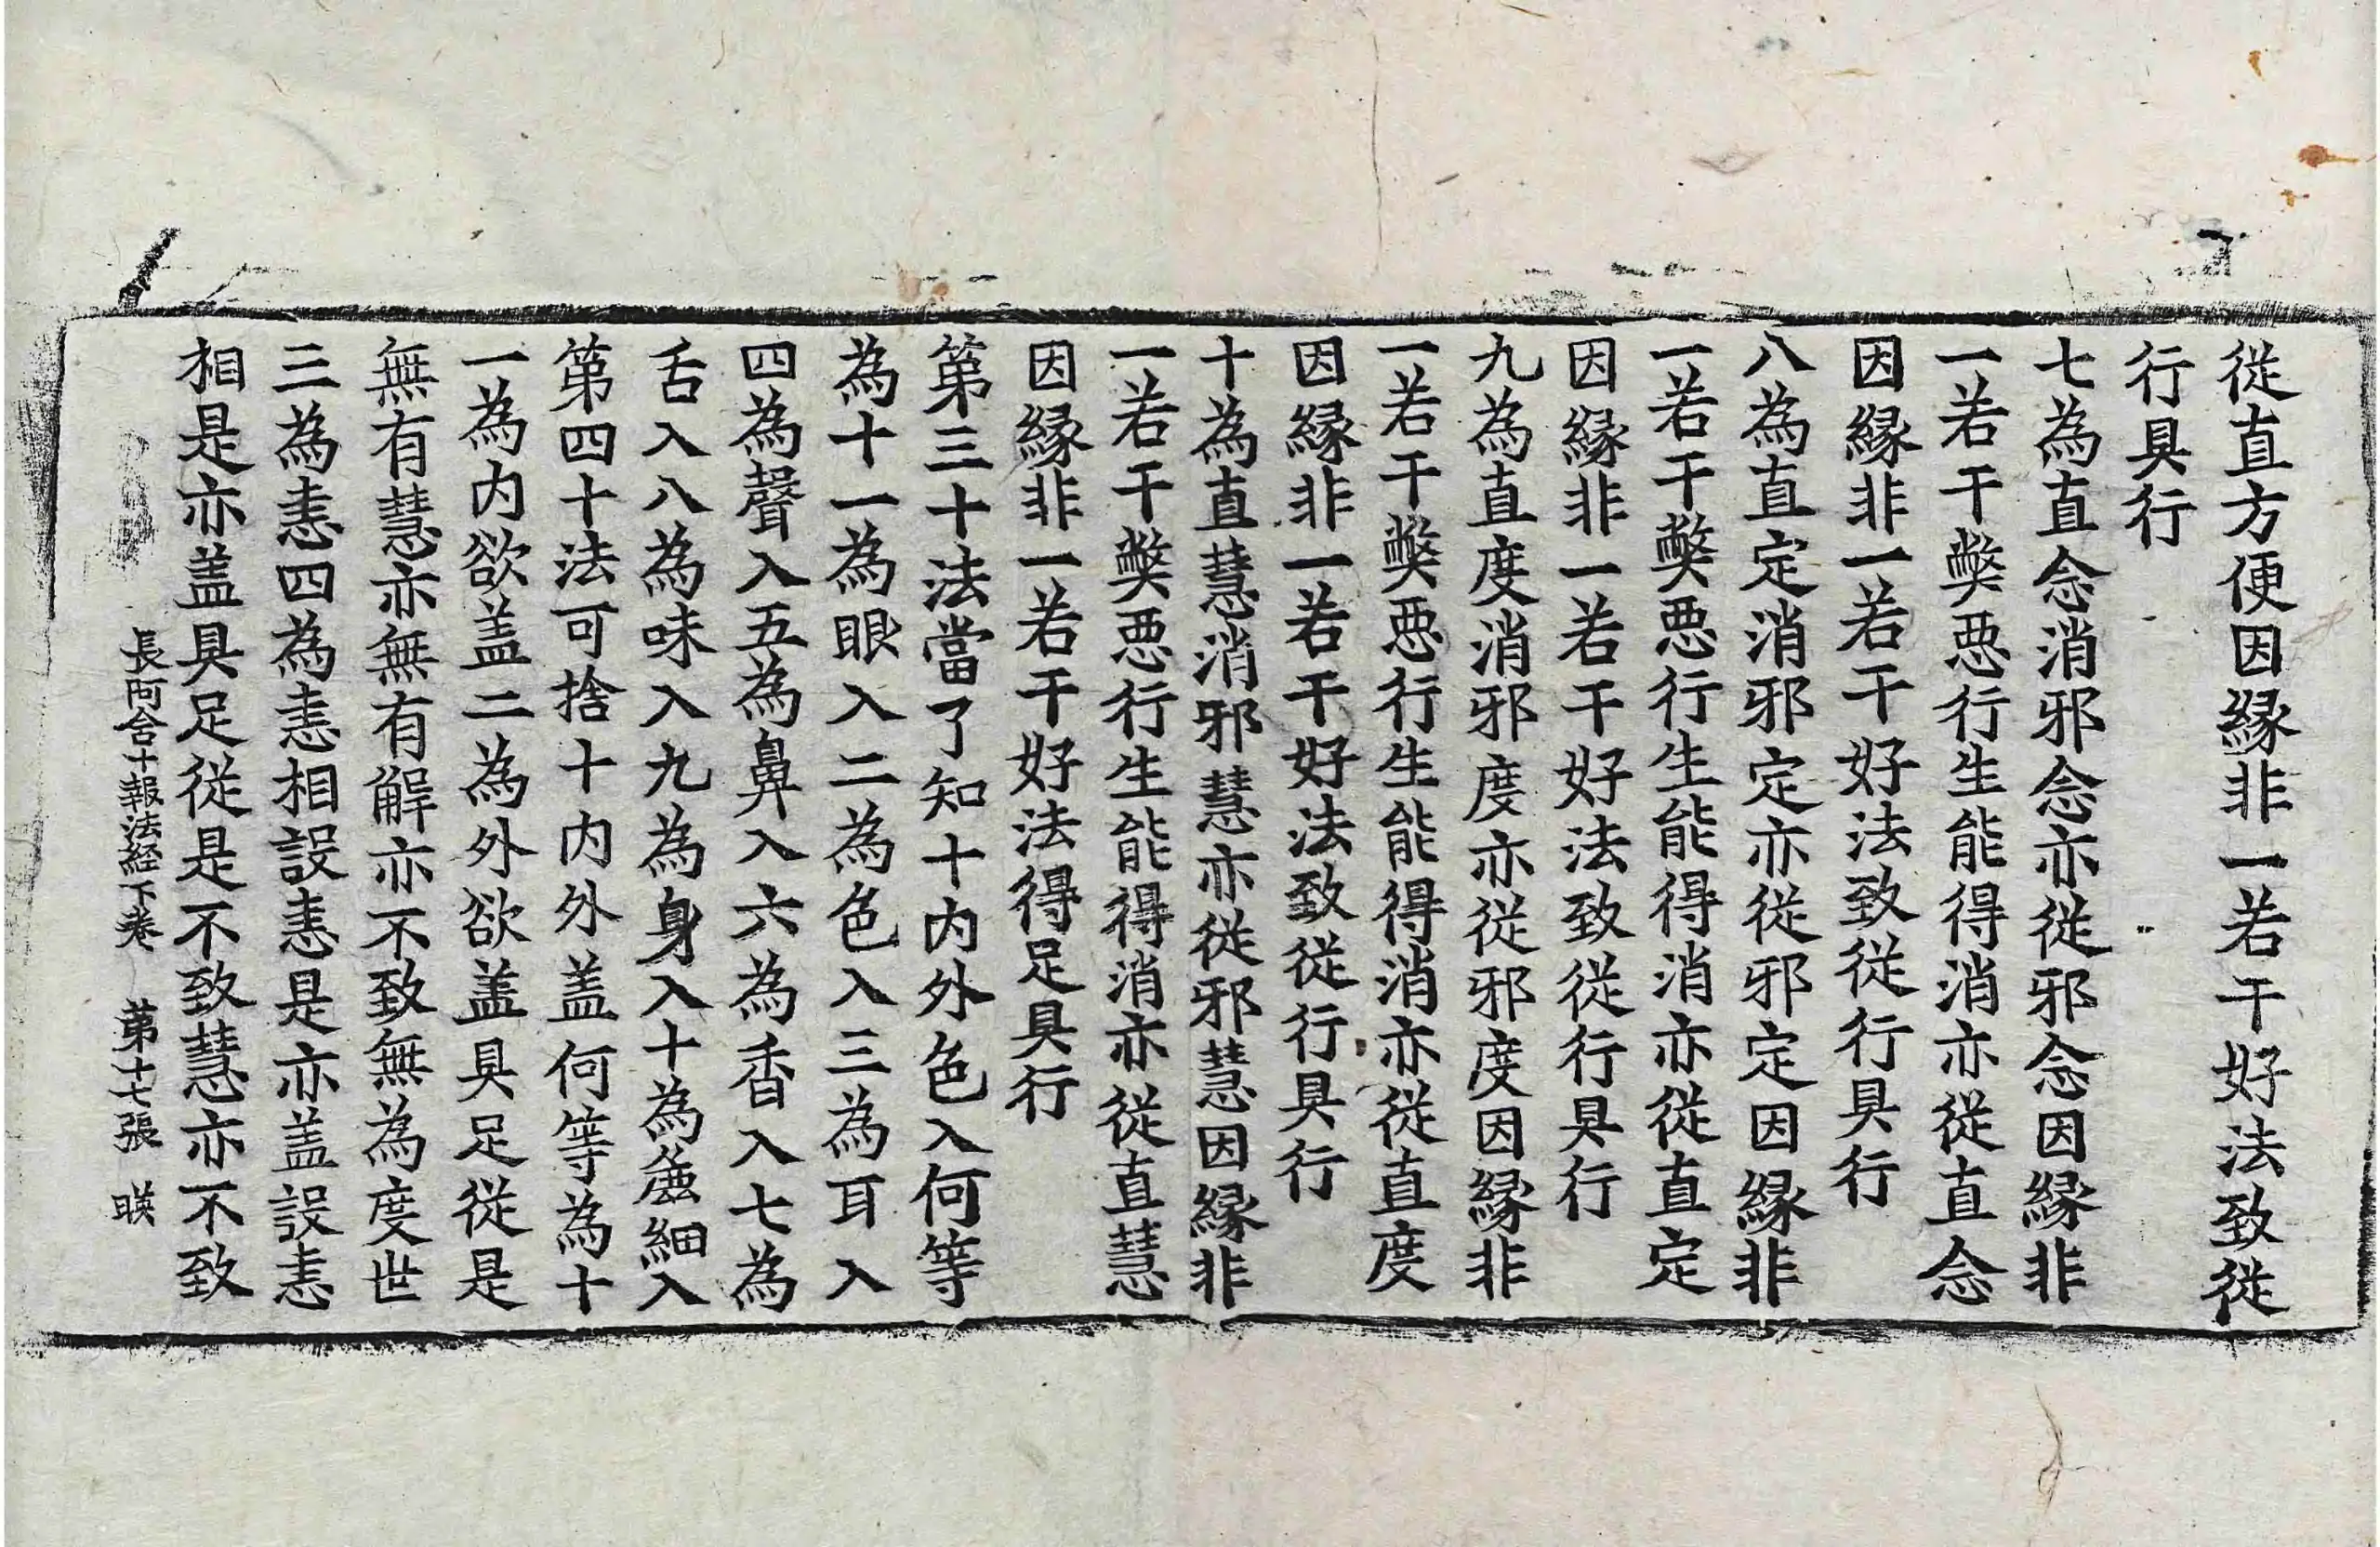 従直方便因縁非一若干好法致従
行具行
七為直念消邪念亦従邪念因縁非
一若干弊悪行生能得消亦従直念
因縁非一若干好法致従行具行
八為直定消邪定亦従邪定因縁非
一若干弊悪行生能得消亦従直定
因縁非一若干好法致従行具行
九為直度消邪度亦従邪度因縁非
一若干弊悪行生能得消亦従直度
因縁非一若干好法致従行具行
十為直慧消邪慧亦従邪慧因縁非
一若干弊悪行生能得消亦従直慧
因縁非一若干好法得足具行
第三十法當了知十内外色入何等
為十一為眼入二為色入三為耳入
四為聲入五為鼻入六為香入七為
舌入八為味入九為身入十為麁細入
第四十法可捨十内外盖何等為十
一為内欲盖二為外欲盖具足従是
無有慧亦無有解亦不致無為度世
三為恚四為恚相設恚是亦盖設恚
相是亦盖具足従是不致慧亦不致
長阿含十報法経下巻 第十七張 暎